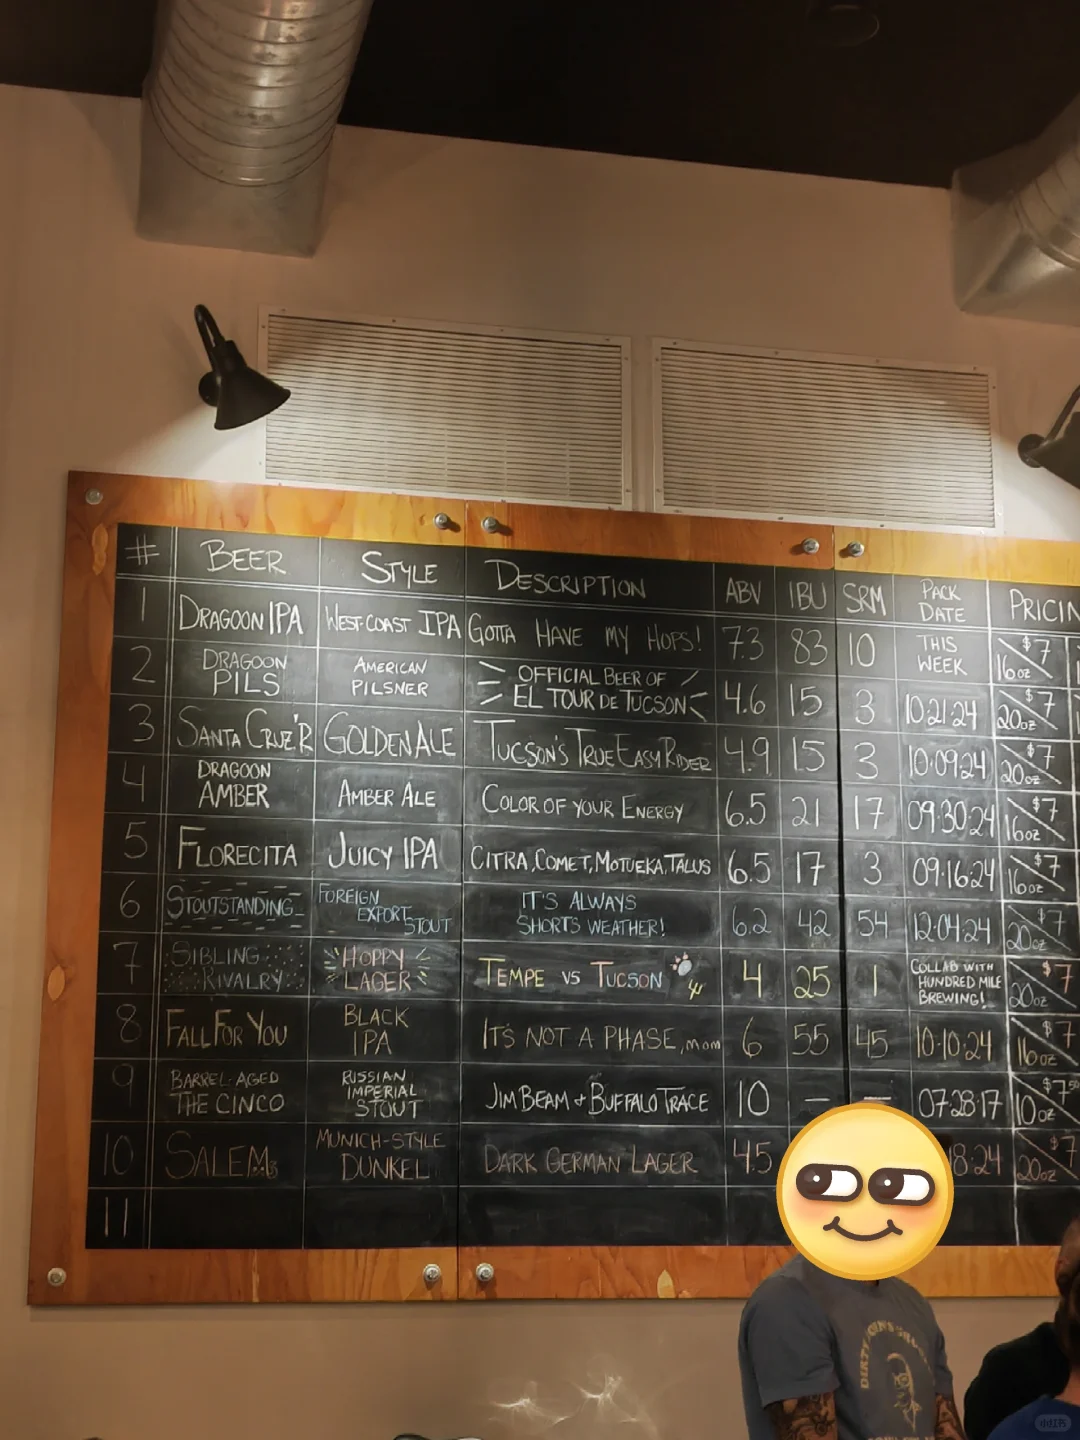 # BEER STYLE DESCRIPTION ABV IBU SRM PACK DATE PRICIN
1 DRAGOON IPA WEST-COAST IPA GOTTA HAVE MY HOPS! 7.3 83 10 THIS WEEK $7 16oz
2 DRAGOON PILS AMERICAN PILSNER OFFICIAL BEER OF EL TOUR DE TUCSON 4.6 15 3 10·21·24 $7 20oz
3 SANTA CRUZ'R GOLDEN ALE TUCSON'S TRUE EASY RIDER 4.9 15 3 10·09·24 $7 20oz
4 DRAGOON AMBER AMBER ALE COLOR OF YOUR ENERGY 6.5 21 17 09·30·24 $7 16oz
5 FLORECITA JUICY IPA CITRA, COMET, MOTUEKA, TALUS 6.5 17 3 09·16·24 $7 16oz
6 STOUTSTANDING FOREIGN EXPORT STOUT IT'S ALWAYS SHORTS WEATHER! 6.2 42 54 12·04·24 $7 20oz
7 SIBLING RIVALRY HOPPY LAGER TEMPE VS TUCSON 4 25 1 COLLAB WITH HUNDRED MILE BREWING! $7 20oz
8 FALL FOR YOU BLACK IPA IT'S NOT A PHASE, mom 6 55 45 10·10·24 $7 16oz
9 BARREL-AGED THE CINCO RUSSIAN IMPERIAL STOUT JIM BEAM + BUFFALO TRACE 10 — — 07·28·17 $7.50 10oz
10 SALEM MUNICH-STYLE DUNKEL DARK GERMAN LAGER 4.5 18·24 $7 20oz
11